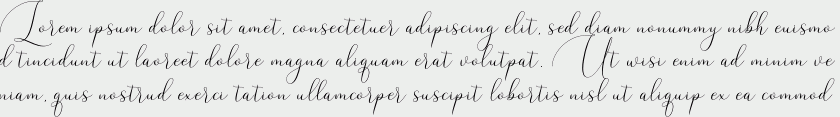 Lorem ipsum dolor sit amet, consectetuer adipiscing elit, sed diam nonummy nibh euismo
d tincidunt ut laoreet dolore magna aliquam erat volutpat. Ut wisi enim ad minim ve
niam, quis nostrud exerci tation ullamcorper suscipit lobortis nisl ut aliquip ex ea commod